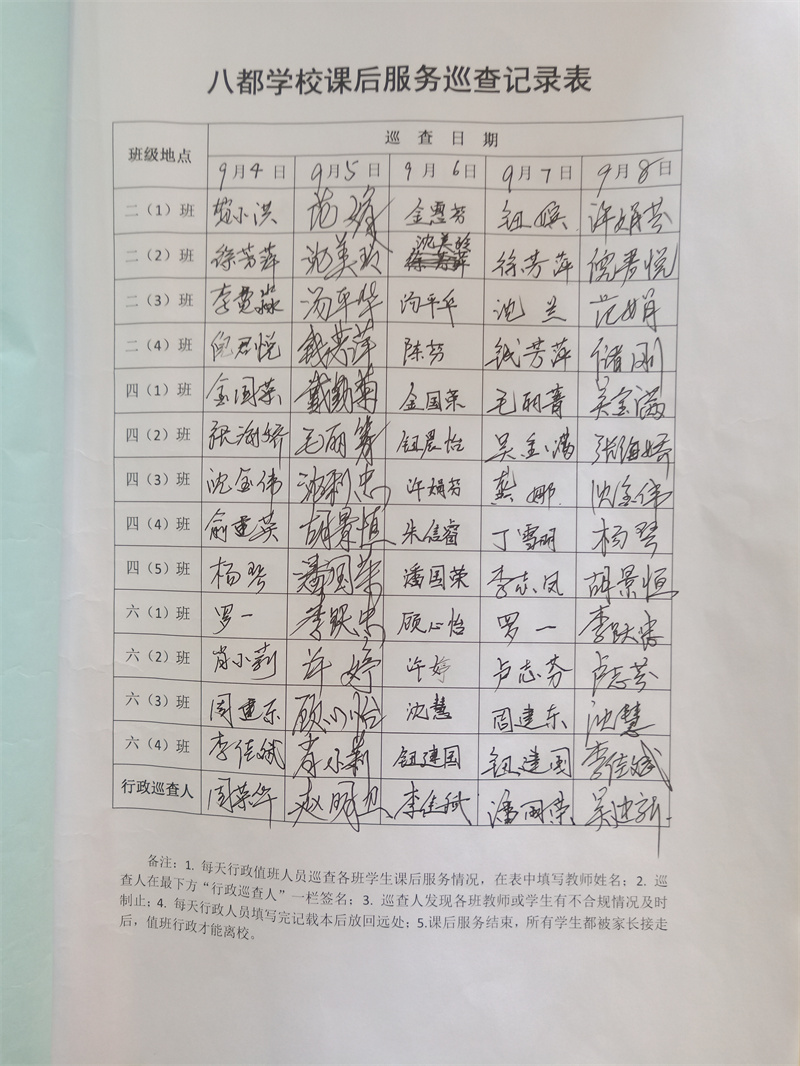 八都学校课后服务巡查记录表
班级地点 巡 查 日 期
9月4日 9月5日 9月6日 9月7日 9月8日
二（1）班 小洪 范 金惠芳 钮 许娟芬
二（2）班 徐芳萍 沈美玲 沈美玲 徐芳萍 倪君悦
二（3）班 李 汤平华 汤平华 沈兰 范娟
二（4）班 倪君悦 钱芳萍 陈芬 钱芳萍 储刚
四（1）班 金国荣 戴勤菊 金国荣 毛丽菁 吴金满
四（2）班 张海娇 毛丽菁 钮晨怡 吴金满 张海娇
四（3）班 沈金伟 沈利忠 许娟芬 龚娜 沈金伟
四（4）班 俞建英 胡景恒 朱信睿 丁雪明 杨琴
四（5）班 杨琴 潘国荣 潘国荣 李志凤 胡景恒
六（1）班 罗一 李跃忠 顾心怡 罗一 李跃忠
六（2）班 肖小莉 许婷 许婷 卢志芬 卢志芬
六（3）班 周建东 顾心怡 沈慧 周建东 沈慧
六（4）班 李佳斌 肖小莉 钮建国 钮建国 李佳斌
行政巡查人 周荣华 赵明 李佳斌 潘国荣 吴建新
备注：1. 每天行政值班人员巡查各班学生课后服务情况，在表中填写教师姓名；2. 巡
查人在最下方“行政巡查人”一栏签名；3. 巡查人发现各班教师或学生有不合规情况及时
制止；4. 每天行政人员填写完记载本后放回远处；5.课后服务结束，所有学生都被家长接走
后，值班行政才能离校。